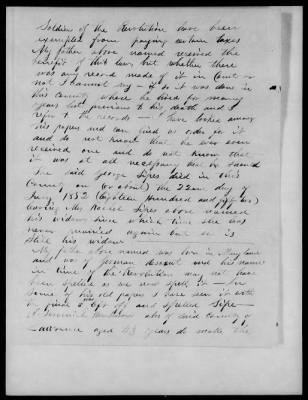 Soldiers of the Revolution have been
exempted from paying certain taxes
My father above named received the
benefit of that law, but whether there
was any record made of it in Court or
not I cannot say – if so it was done in
this County where he lived for many
years before previous to his death and I
refer to the records – I have looked among
his papers and can find no order for it
and do not know that he ever even
received one and do not know that
it was at all necessary that he should
The said George Sipes died in this
County on (or about) the 22nd day of
July 1852 (Eighteen hundred and fifty two)
leaving Mrs Rachel Sipes above named
his widow since which time she has
never married again but she is
still his widow
My father above named was born in Maryland
and was of German descent and his name
in time of the Revolution may not have
been spelled as we now spell it – for
some of his old papers I have seen it with
the final s off and spelled Sipe –
also of said County of
Lawrence aged 43 years do make the